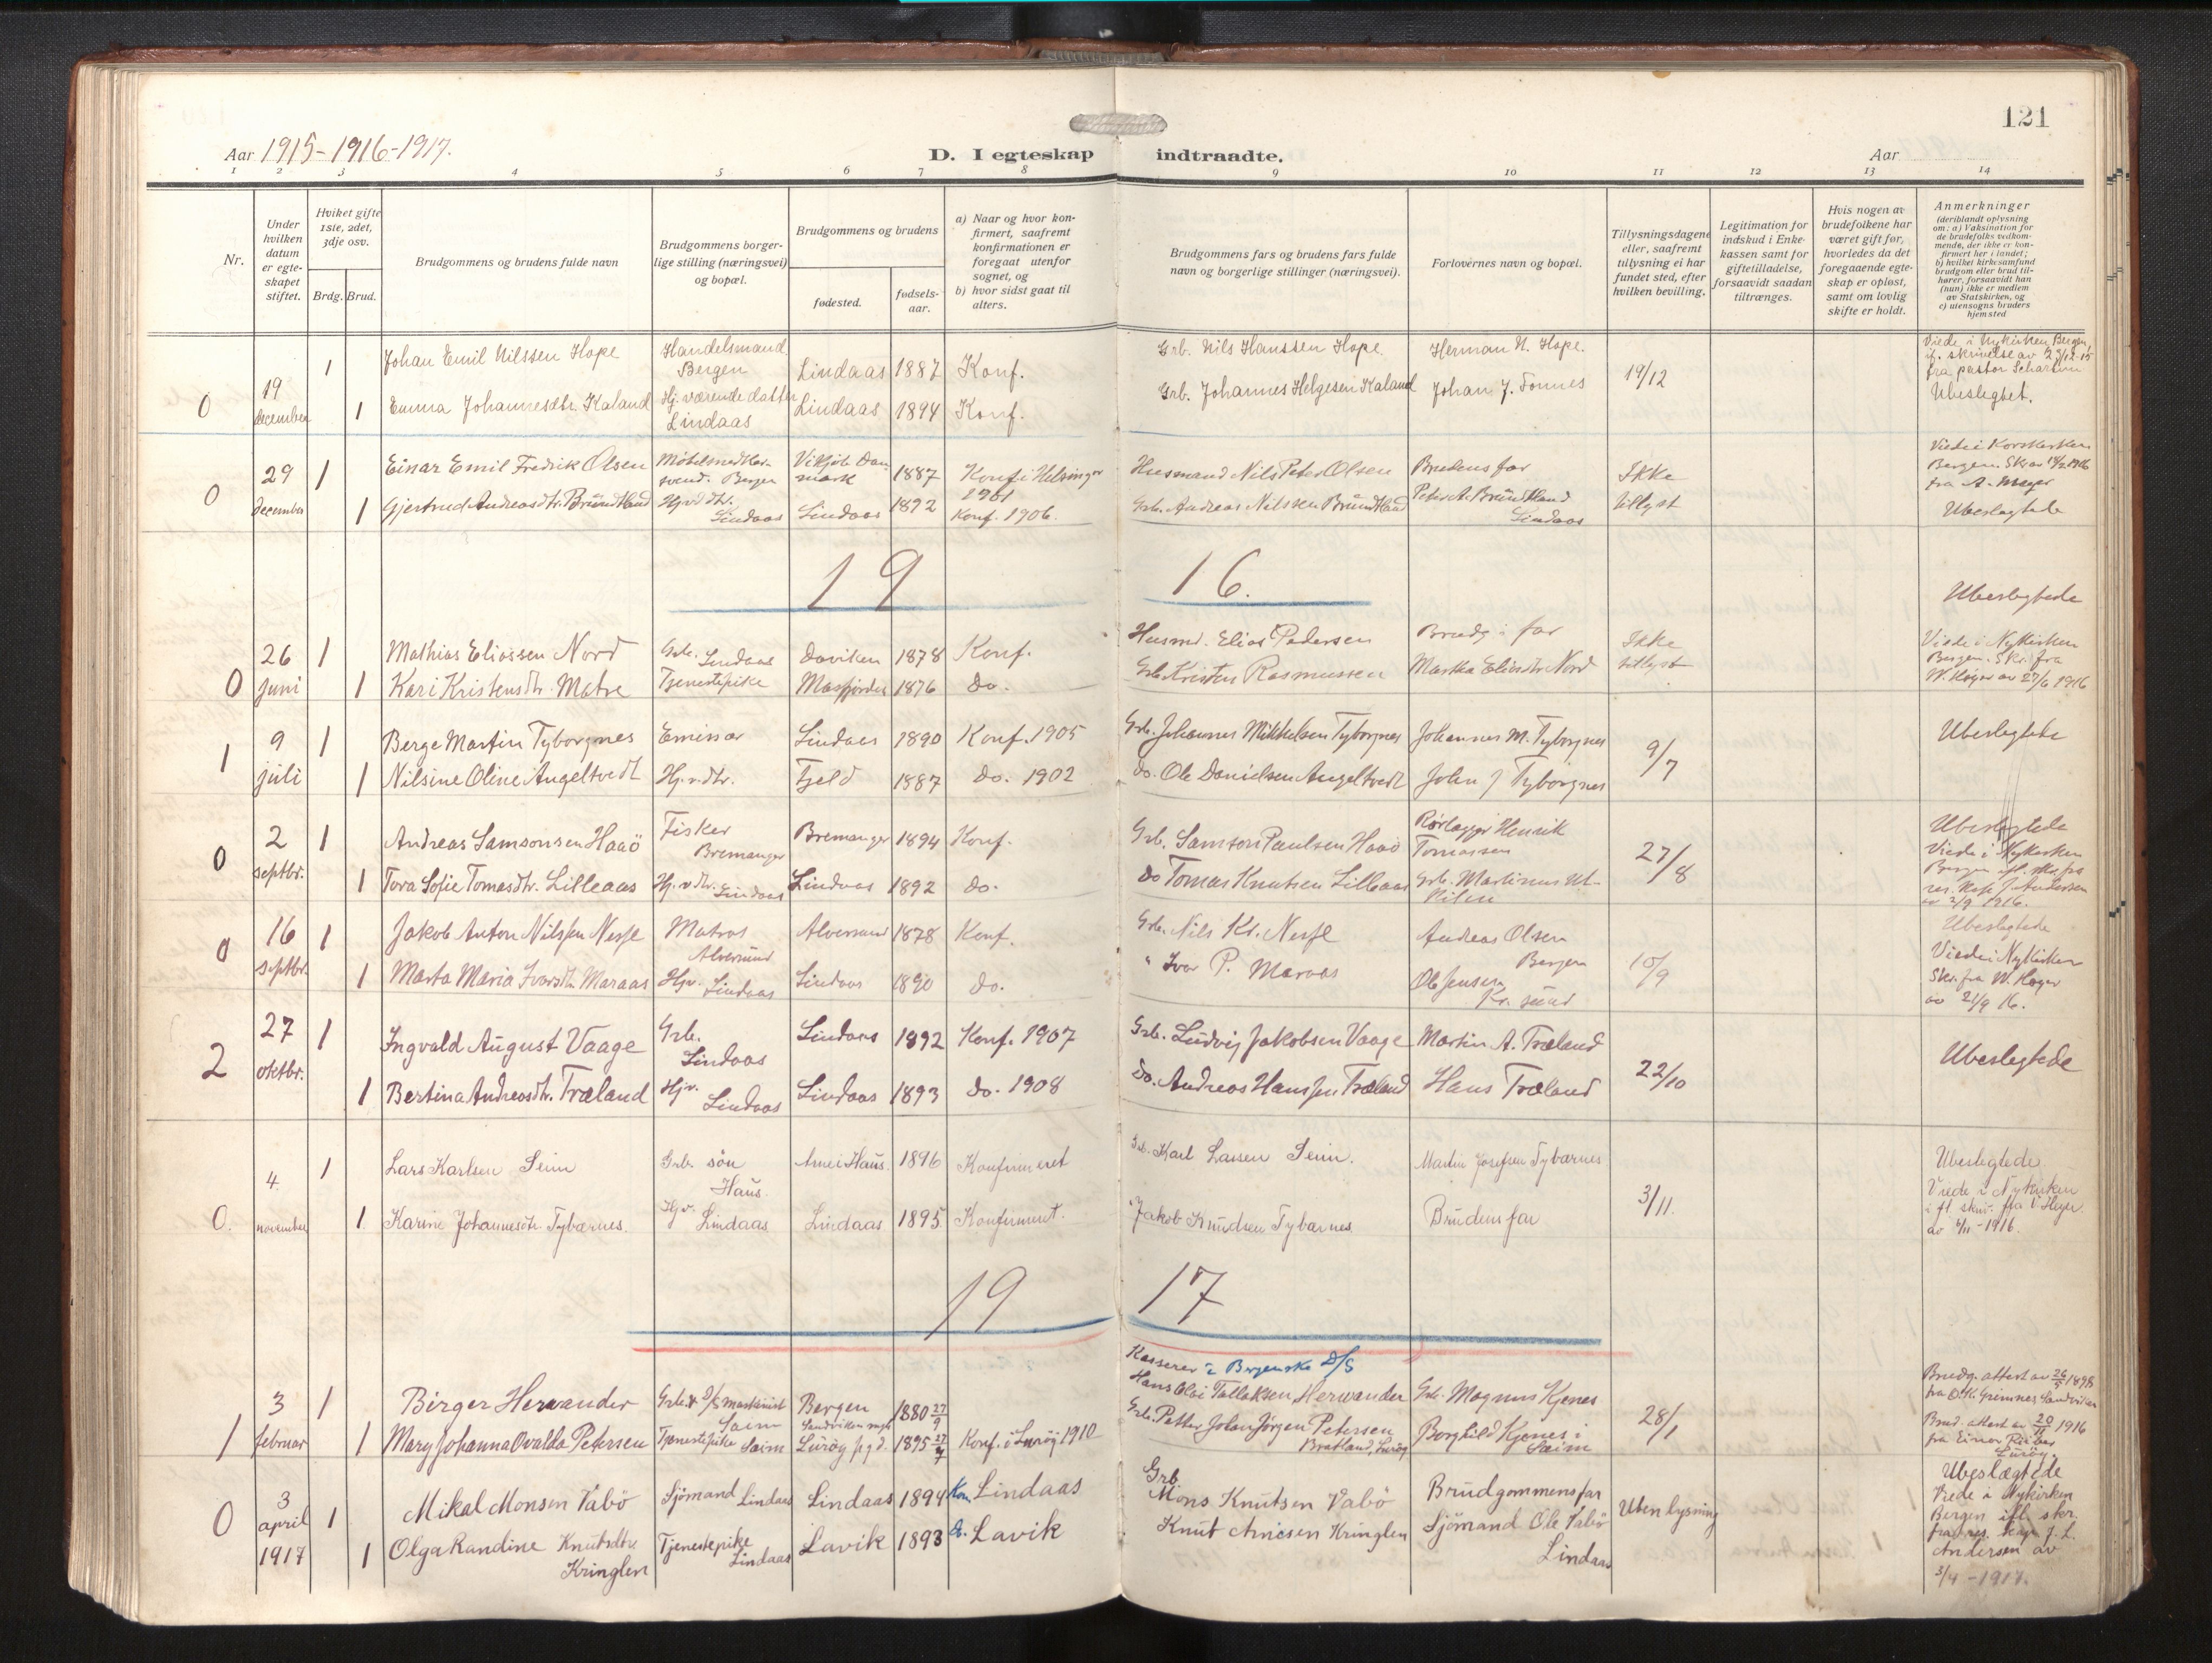 121
Aar 1915-1916-1917.
D. I egteskap indtraadte.
Aar
1 2 3 4 5 6 7 8 9 10 11 12 13 14
Nr.
Under
hvilken
datum
er egte-
skapet
stiftet.
Hviket gifte
1ste, 2det,
3dje osv.
Brdg. Brud.
Brudgommens og brudens fulde navn
Brudgommens borger-
lige stilling (næringsvei)
og bopæl.
Brudgommens og brudens
fødested.
fødsels-
aar.
a) Naar og hvor kon-
firmert, saafremt
konfirmationen er
foregaat utenfor
sognet, og
b) hvor sidst gaat til
alters.
Brudgommens fars og brudens fars fulde
navn og borgerlige stillinger (næringsvei).
Forlovernes navn og bopæl.
Tillysningsdagene
eller, saafremt
tillysning ei har
fundet sted, efter
hvilken bevilling.
Legitimation for
indskud i Enke-
kassen samt for
giftetilladelse,
forsaavidt saadan
tiltrænges.
Hvis nogen av
brudefolkene har
været gift før,
hvorledes da det
foregaaende egte-
skap er opløst,
samt om lovlig
skifte er holdt.
Anmerkninger
(deriblandt oplysning
om: a) Vaksination for
de brudefolks vedkom-
mende, der ikke er kon-
firmert her i landet;
b) hvilket kirkesamfund
brudgom eller brud til-
hører, forsaavidt han
(hun) ikke er medlem
av Statskirken, og
c) utensogns bruders
hjemsted
0
19
december
1
Johan Emil Nilssen Hope
Handelsmand
Bergen
Lindaas 1887 Konf.
Grb. Nils Hanssen Hope
Herman N. Hope.
19/12
Viede i Nykirken Bergen,
if. skrivelse av 27/12-15
fra pastor Scharlun
Ubeslegtet.
1
Emma Johannesdtr. Kaland
Hj. værende datter
Lindaas
Lindaas 1894 Konf.
Grb. Johannes Helgesen Kaland
Johan J. Fonnes
0
29
december
1
Einar Emil Fredrik Olsen
Møbelsnedker-
svend. Bergen
Danmark
1887
Konf. i Helsingør
1901
Husmand Nils Peter Olsen
Brudens far
Ikke
tillyst
Viede i Korskirken
Bergen.
Ubeslegtede
1
Gjertrud Andreasdtr. Brundtland
Hjv. dtr.
Lindaas
Lindaas 1892
Konf. 1906.
Grb. Andreas Nilssen Brundtland
Peter A. Brundtland
Lindaas
1916.
Ubeslegtede
0
26
juni
1
Mathias Eliassen Nord
Grb. Lindaas
Daviken 1878 Konf.
Husmd. Elias Pedersen
Brudg.s far
Ikke
tillyst
Viede i Nykirken
Bergen. Skr. fra
W. Høyer av 27/6 1916
1
Kari Kristensdtr. Matre
Tjenestepike
Masfjorden 1876 do.
Grb. Kristen Rasmussen
Martha Eliasdtr. Nord
1
9
juli
1
Berge Martin Tyborgnes
Emissær
Lindaas 1890 Konf. 1905
Grb. Johannes Mikkelsen Tyborgnes
Johannes M. Tyborgnes
9/7
Ubeslegtede
1
Nilsine Oline Angeltvedt
Hj.v.dtr.
Fjeld 1887 do. 1902
do. Ole Danielsen Angeltvedt
John J Tyborgnes
0
2
septbr.
1
Andreas Samsonsen Haaö
Fisker
Bremanger
Bremanger 1894 Konf.
Grb. Samson Paulsen Haaö
Rørlægger Henrik
Tomassen
27/8
Ubeslegtede
Viede i Nykirken
Bergen ifl. skr. fra
res. kap. J. Andersen
av 2/9 1916.
1
Tora Sofie Tomasdtr. Lilleaas
Hj.v.dtr. Lindaas
Lindaas 1892 do.
Do Tomas Knutsen Lilleaas
Grb. Martinus M.
0
16
septbr.
1
Jakob Anton Nilssen Nesse
Matros
Alversund
Alversund 1878 Konf.
Grb. Nils Kr. Nesse
Andreas Olsen
Bergen
10/9
Ubeslegtede
Viede i Nykirken
Skr. fra W. Høyer
av 21/9 16.
1
Marta Maria Ivarsdtr. Maraas
Hjv. Lindaas
Lindaas 1890 do.
" Ivar P. Maraas
Ole Jensen
Kr. sund
2
27
oktbr.
1
Ingvald August Vaage
Grb.
Lindaas
Lindaas 1892 Konf. 1907
Grb. Ludvig Jakobsen Vaage
Martin A. Træland
22/10
Ubeslegtede
1
Bertina Andreasdtr. Træland
Hjv.
Lindaas
Lindaas 1893 do. 1908
Do. Andreas Hanssen Træland
Hans Træland
0.
4.
november
1
Lars Karlsen Seim
Grb. sön
Haus.
Arne i Haus. 1896 Konfirmeret
Grb. Karl Larsen Seim.
Martin Josefsen Tybærnes
3/11.
Ubeslegtede
Viede i Nykirken
ifl. skriv. fra V. Høyer.
av 4/11-1916.
1.
Karine Johannesdtr. Tybærnes.
Hjv. Lindaas
Lindaas 1895. Konfirmeret.
Jakob Knudsen Tybærnes
Brudens far
1917
1
3
februar
1
Birger Herwander
Grb. & D/S maskinist
Seim
Bergen
1880 27/9
Kasserer i Bergenske D/S
Hans Olai Tallaksen Herwander
Grb. Magnus Kjenes
28/1
Brudg. attest av 26/5 1898
fra O.K. Grimnes Sandviken
1
Mary Johanna Ovalda Petersen
Tjenestepike Seim
Lurøy pgd. 1895 17/7 Konf. i Lurøy 1910
Grb. Petter Johan Jörgen Petersen
Bratland, Lurøy
Borghild Kjenes i
Seim
Brud. attest av 20/11 1916
fra Einar Riiber
Lurøy.
0
3
april
1917
1
Mikal Monsen Vabö
Sjömand Lindaas
Lindaas 1894 Kon. Lindaas
Grb.
Mons Knutsen Vabö
Brudgommens far
Uten lysning
Ubeslægtede
Viede i Nykirken
Bergen ifl. skr.
fra res. kap. J. L.
Andersen av
3/4-1917.
1
Olga Randine Knutsdtr.
Kringlen
Tjenestepike
Lindaas
Lavik 1893 do. Lavik
Knut Arnesen Kringlen
Sjömand Ole Vabö
Lindaas